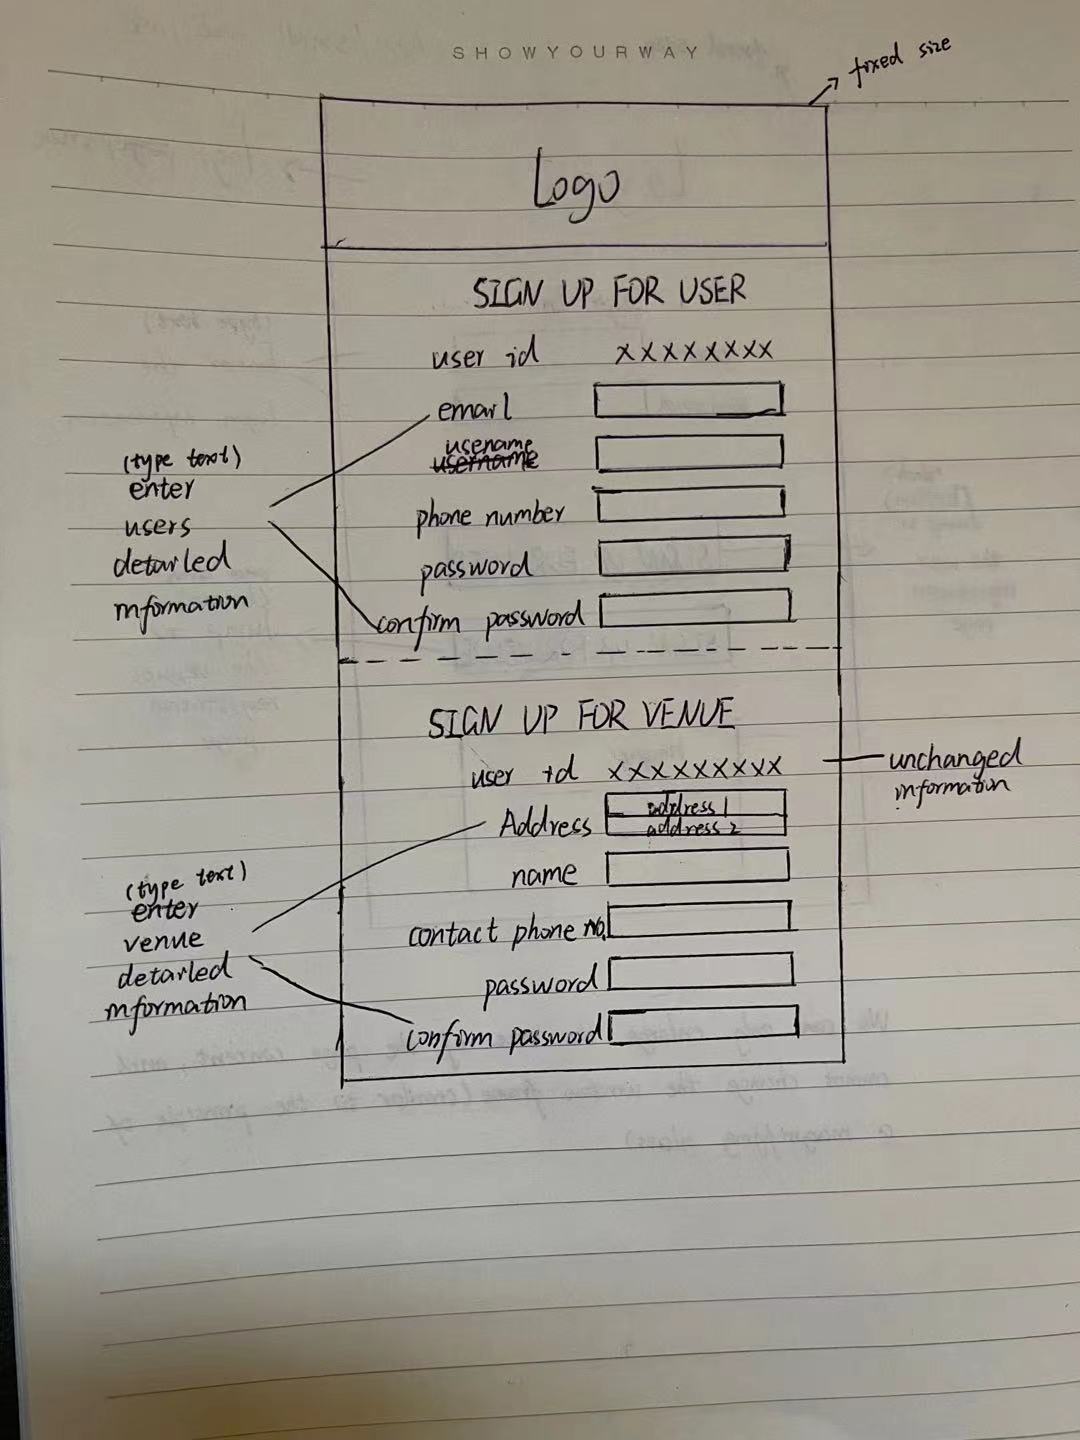 SHOWYOURWAY
fixed size
Logo
SIGN UP FOR USER
user id xxxxxxxx
email
usename
username
phone number
password
confirm password
(type text)
enter
users
detailed
information
SIGN UP FOR VENUE
user id xxxxxxxxx
unchanged
information
Address address 1
address 2
name
contact phone no.
password
confirm password
(type text)
enter
venue
detailed
information